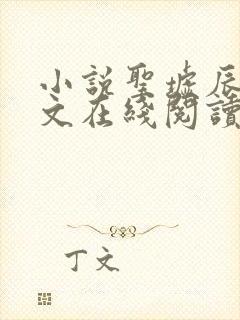 小説聖墟辰
文在綫閱讀
丁文